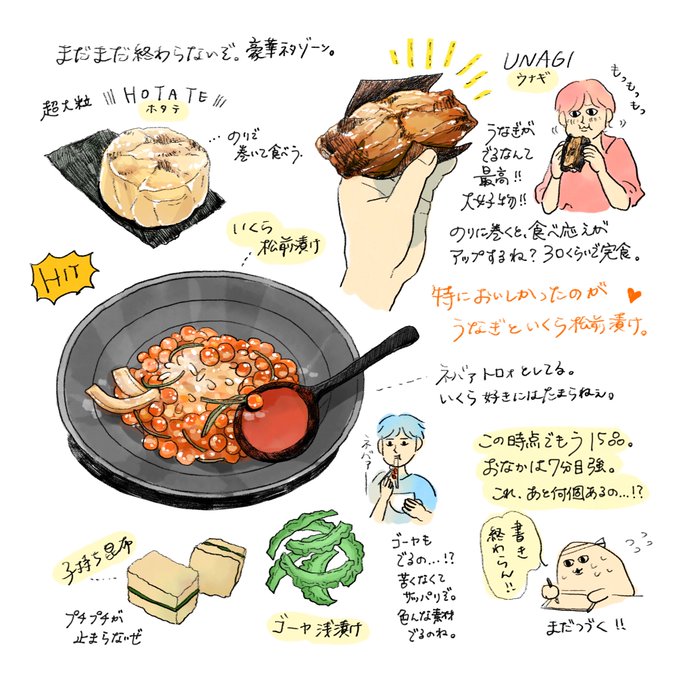 まだまだ終わらないぞ。豪華ネタゾーン。
超大粒
HOTATE
ホタテ
…のりで
巻いて食べう。
UNAGI
ウナギ
もっもっもっ
うなぎが
でるなんて
最高!!
大好物!!
のりに巻くと、食べ応えが
アップするね?30くらいで完食。
いくら
松前漬け
HIT
特においしかったのが
うなぎといくら松前漬け。
ネバァトロォとしてる。
いくら好きにはたまらねぇ。
ネバァー
この時点でもう15品。
おなかは7分目強。
これ、あと何個あるの…!?
子持ち昆布
プチプチが
止まらないぜ
ゴーヤ浅漬け
ゴーヤも
でるの…!?
苦くなくて
サッパリで。
色んな素材
でるのね。
書き
終わらん!!
まだつづく!!